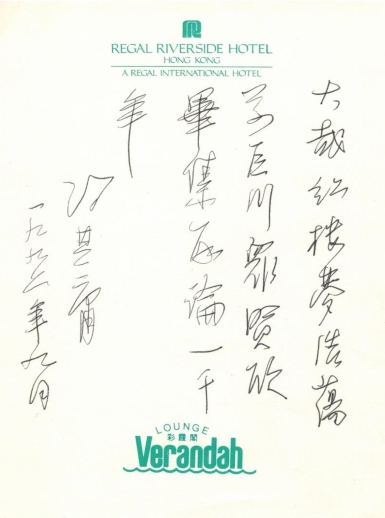 REGAL RIVERSIDE HOTEL
HONG KONG
A REGAL INTERNATIONAL HOTEL
大哉红楼夢浩蕩
若巨川眾賢欣
畢集再論一千
年
冯其庸
一九九六年九月
LOUNGE
彩霞閣
Verandah